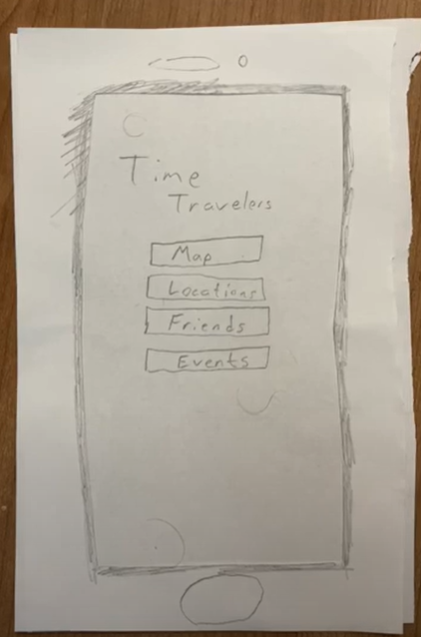 Time
Travelers
Map
Locations
Friends
Events